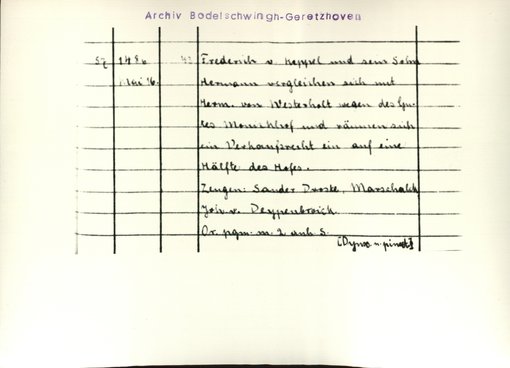 Archiv Bodelschwingh-Geretzhoven
Frederich v. Keppel und sein Sohn
Hermann vergleichen sich mit
Herm. von Westerholt wegen des Gu-
tes und räumen sich
ein Verkaufsrecht ein auf eine
Hälfte des Hofes.
Zeugen: Sander Droste, Marschalch
v.
Or. pgm. m. 2 anh. S.